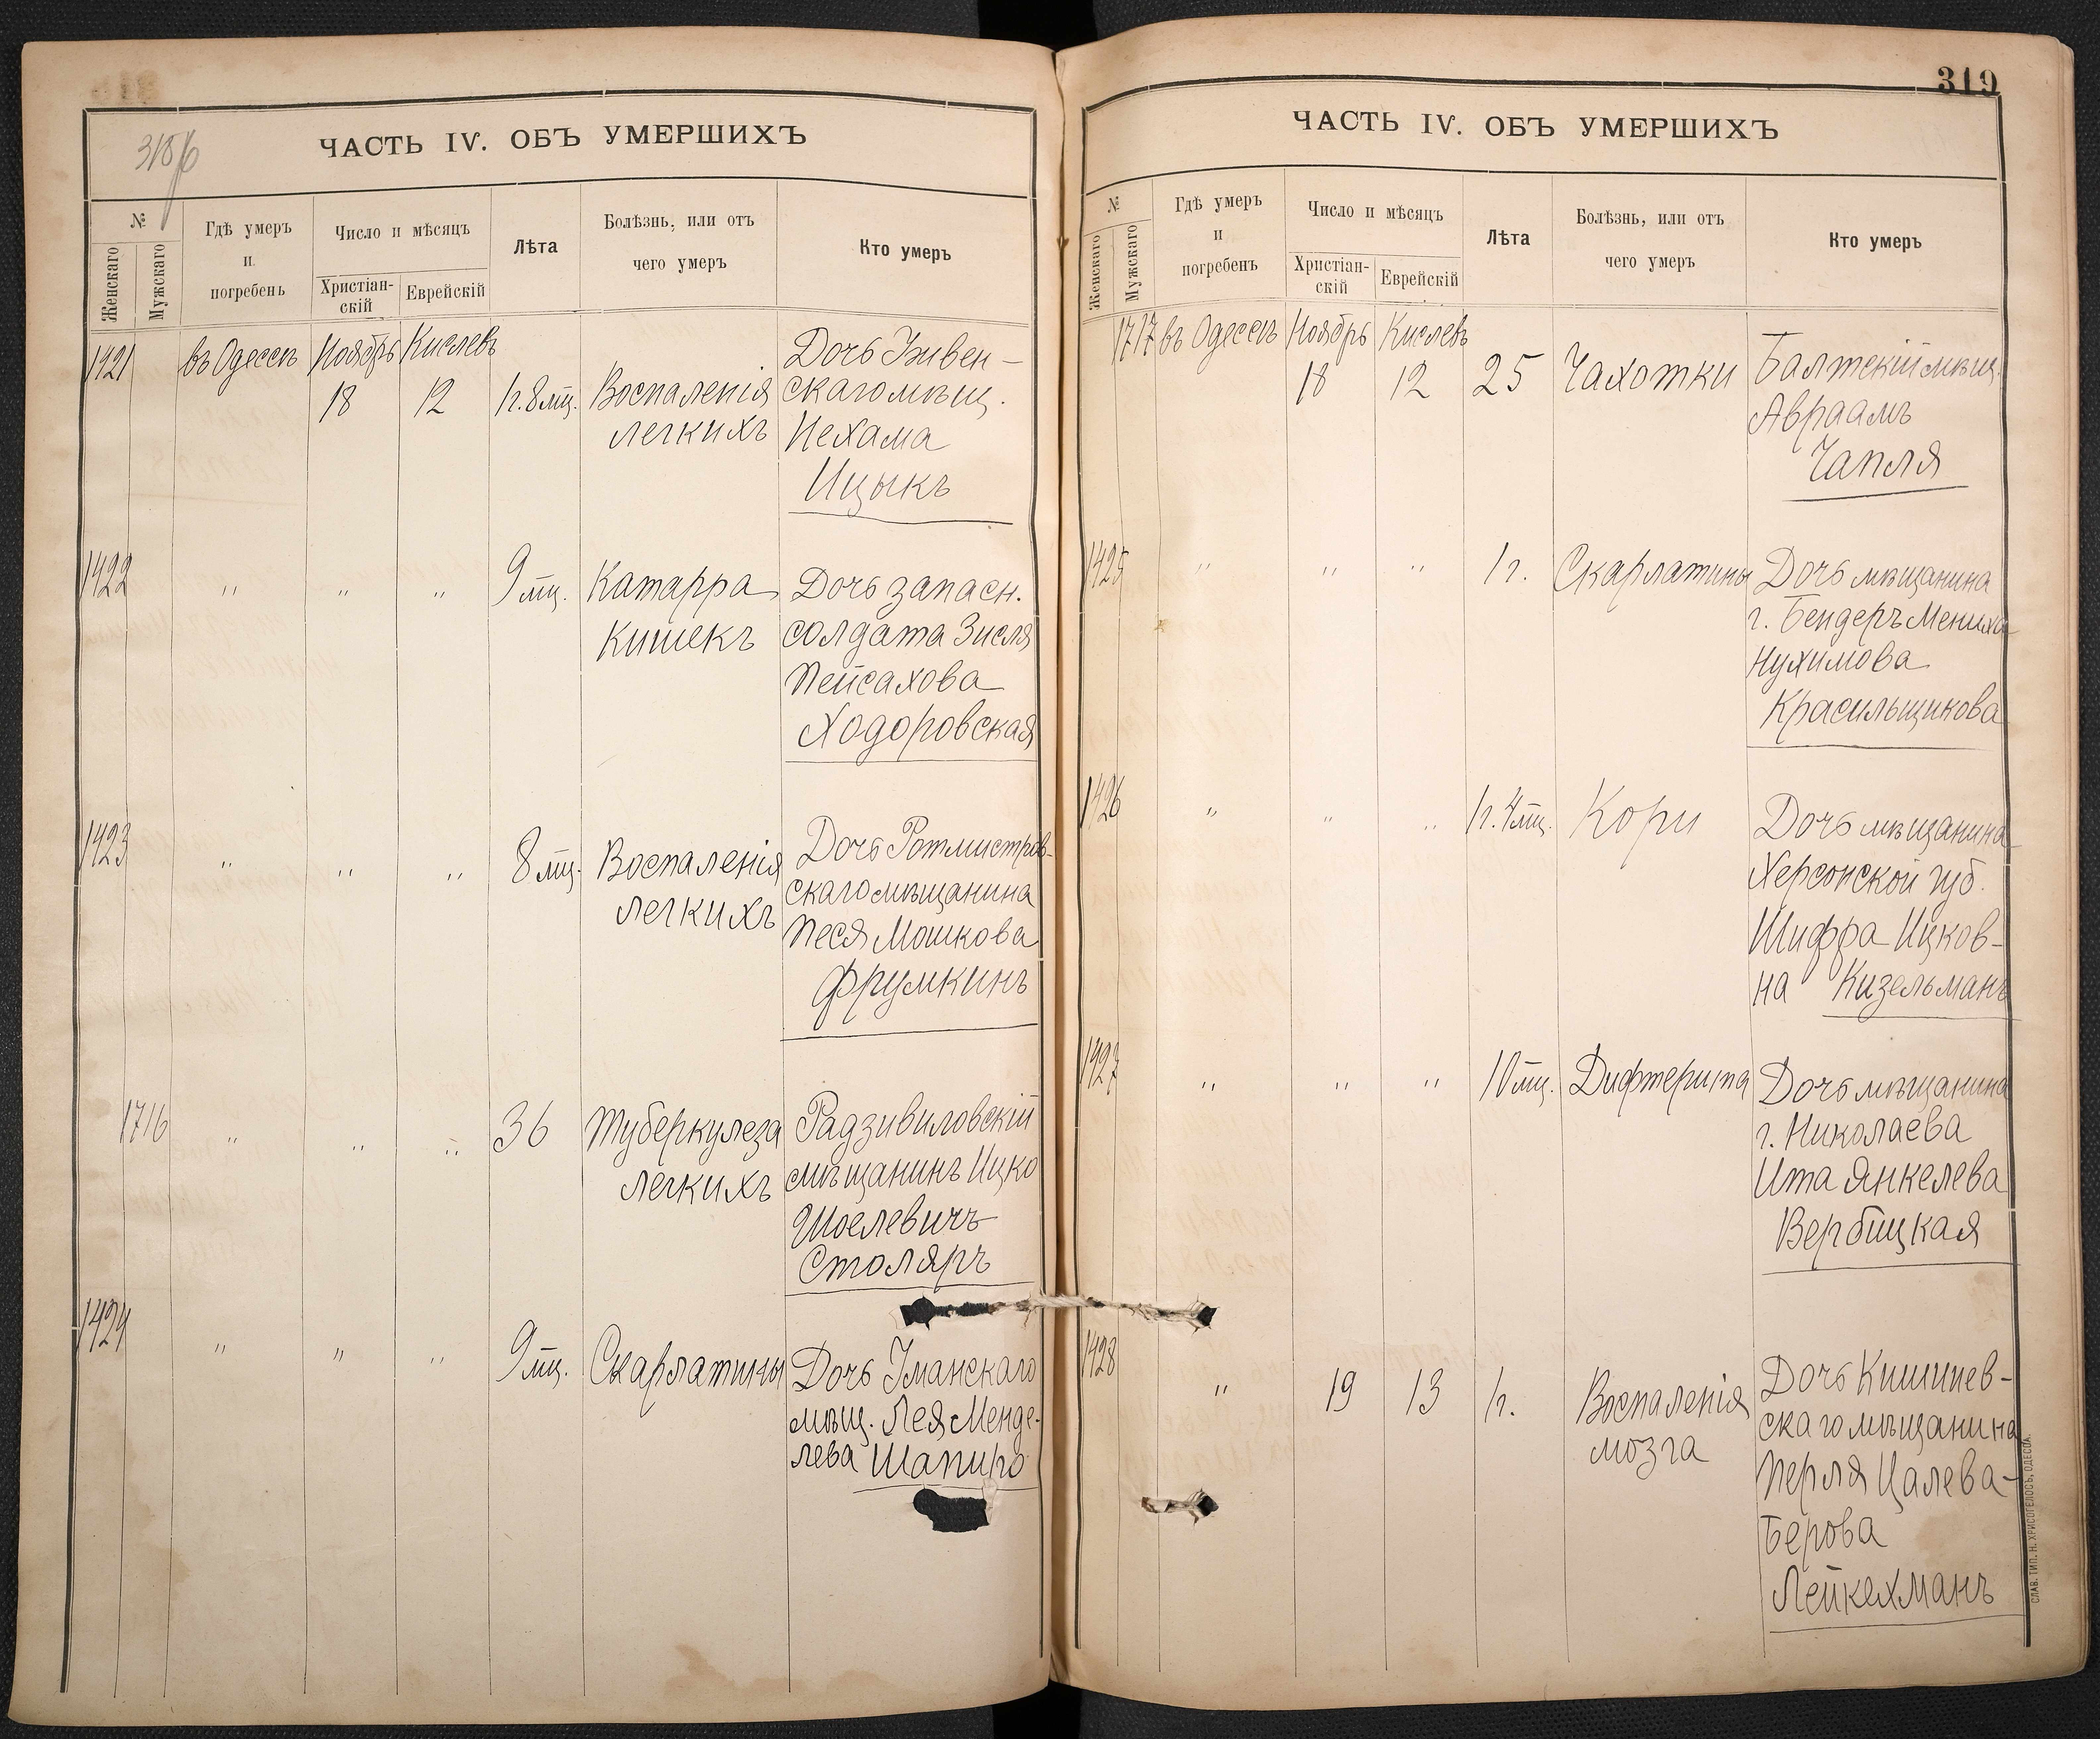 318/б
ЧАСТЬ IV. ОБЪ УМЕРШИХЪ
№
Женскаго
Мужскаго
Гдѣ умеръ
и
погребенъ
Число и мѣсяцъ
Христіан-
скій
Еврейскій
Лѣта
Болѣзнь, или отъ
чего умеръ
Кто умеръ
1421 въ Одессѣ Ноябрь 18 Кислевъ 12 1г. 8 мц. Воспаленія
легкихъ
Дочь
скаго мѣщ.
Нехама
Ицыкъ
1422 " " " 9 мц. Катарра
кишекъ
Дочь запасн.
солдата Зисля
Пейсахова
Ходоровская
1423 " " " 8 мц. Воспаленія
легкихъ
Дочь Ротмистров-
скаго мѣщанина
Песя Мошкова
Фрумкинъ
1716 " " " 36 Туберкулеза
легкихъ
Радзивиловскій
мѣщанинъ Ицко
Шоелевичъ
Столяръ
1424 " " " 9 мц. Скарлатины
Дочь Уманскаго
мѣщ. Лея Менде-
лева Шапиро
319
ЧАСТЬ IV. ОБЪ УМЕРШИХЪ
№
Женскаго
Мужскаго
Гдѣ умеръ
и
погребенъ
Число и мѣсяцъ
Христіан-
скій
Еврейскій
Лѣта
Болѣзнь, или отъ
чего умеръ
Кто умеръ
1717 въ Одессѣ Ноябрь 18 Кислевъ 12 25 Чахотки
Балтскій мѣщ.
Авраамъ
Чапля
1425 " " " 1г. Скарлатины
Дочь мѣщанина
г. Бендеръ Мениха
Нухимова
Красильщикова
1426 " " " 1г. 4 мц. Кори
Дочь мѣщанина
Херсонской губ.
Шифра Ицков-
на Кизельманъ
1427 " " " 10 мц. Дифтерита
Дочь мѣщанина
г. Николаева
Ита Янкелева
Вербицкая
1428 " 19 13 1г. Воспаленія
мозга
Дочь Кишинев-
скаго мѣщанина
Перля Цалева-
Берова
Лейкехманъ
СЛАВ. ТИП. Н. ХРИСОГЕЛОСЪ, ОДЕССА.